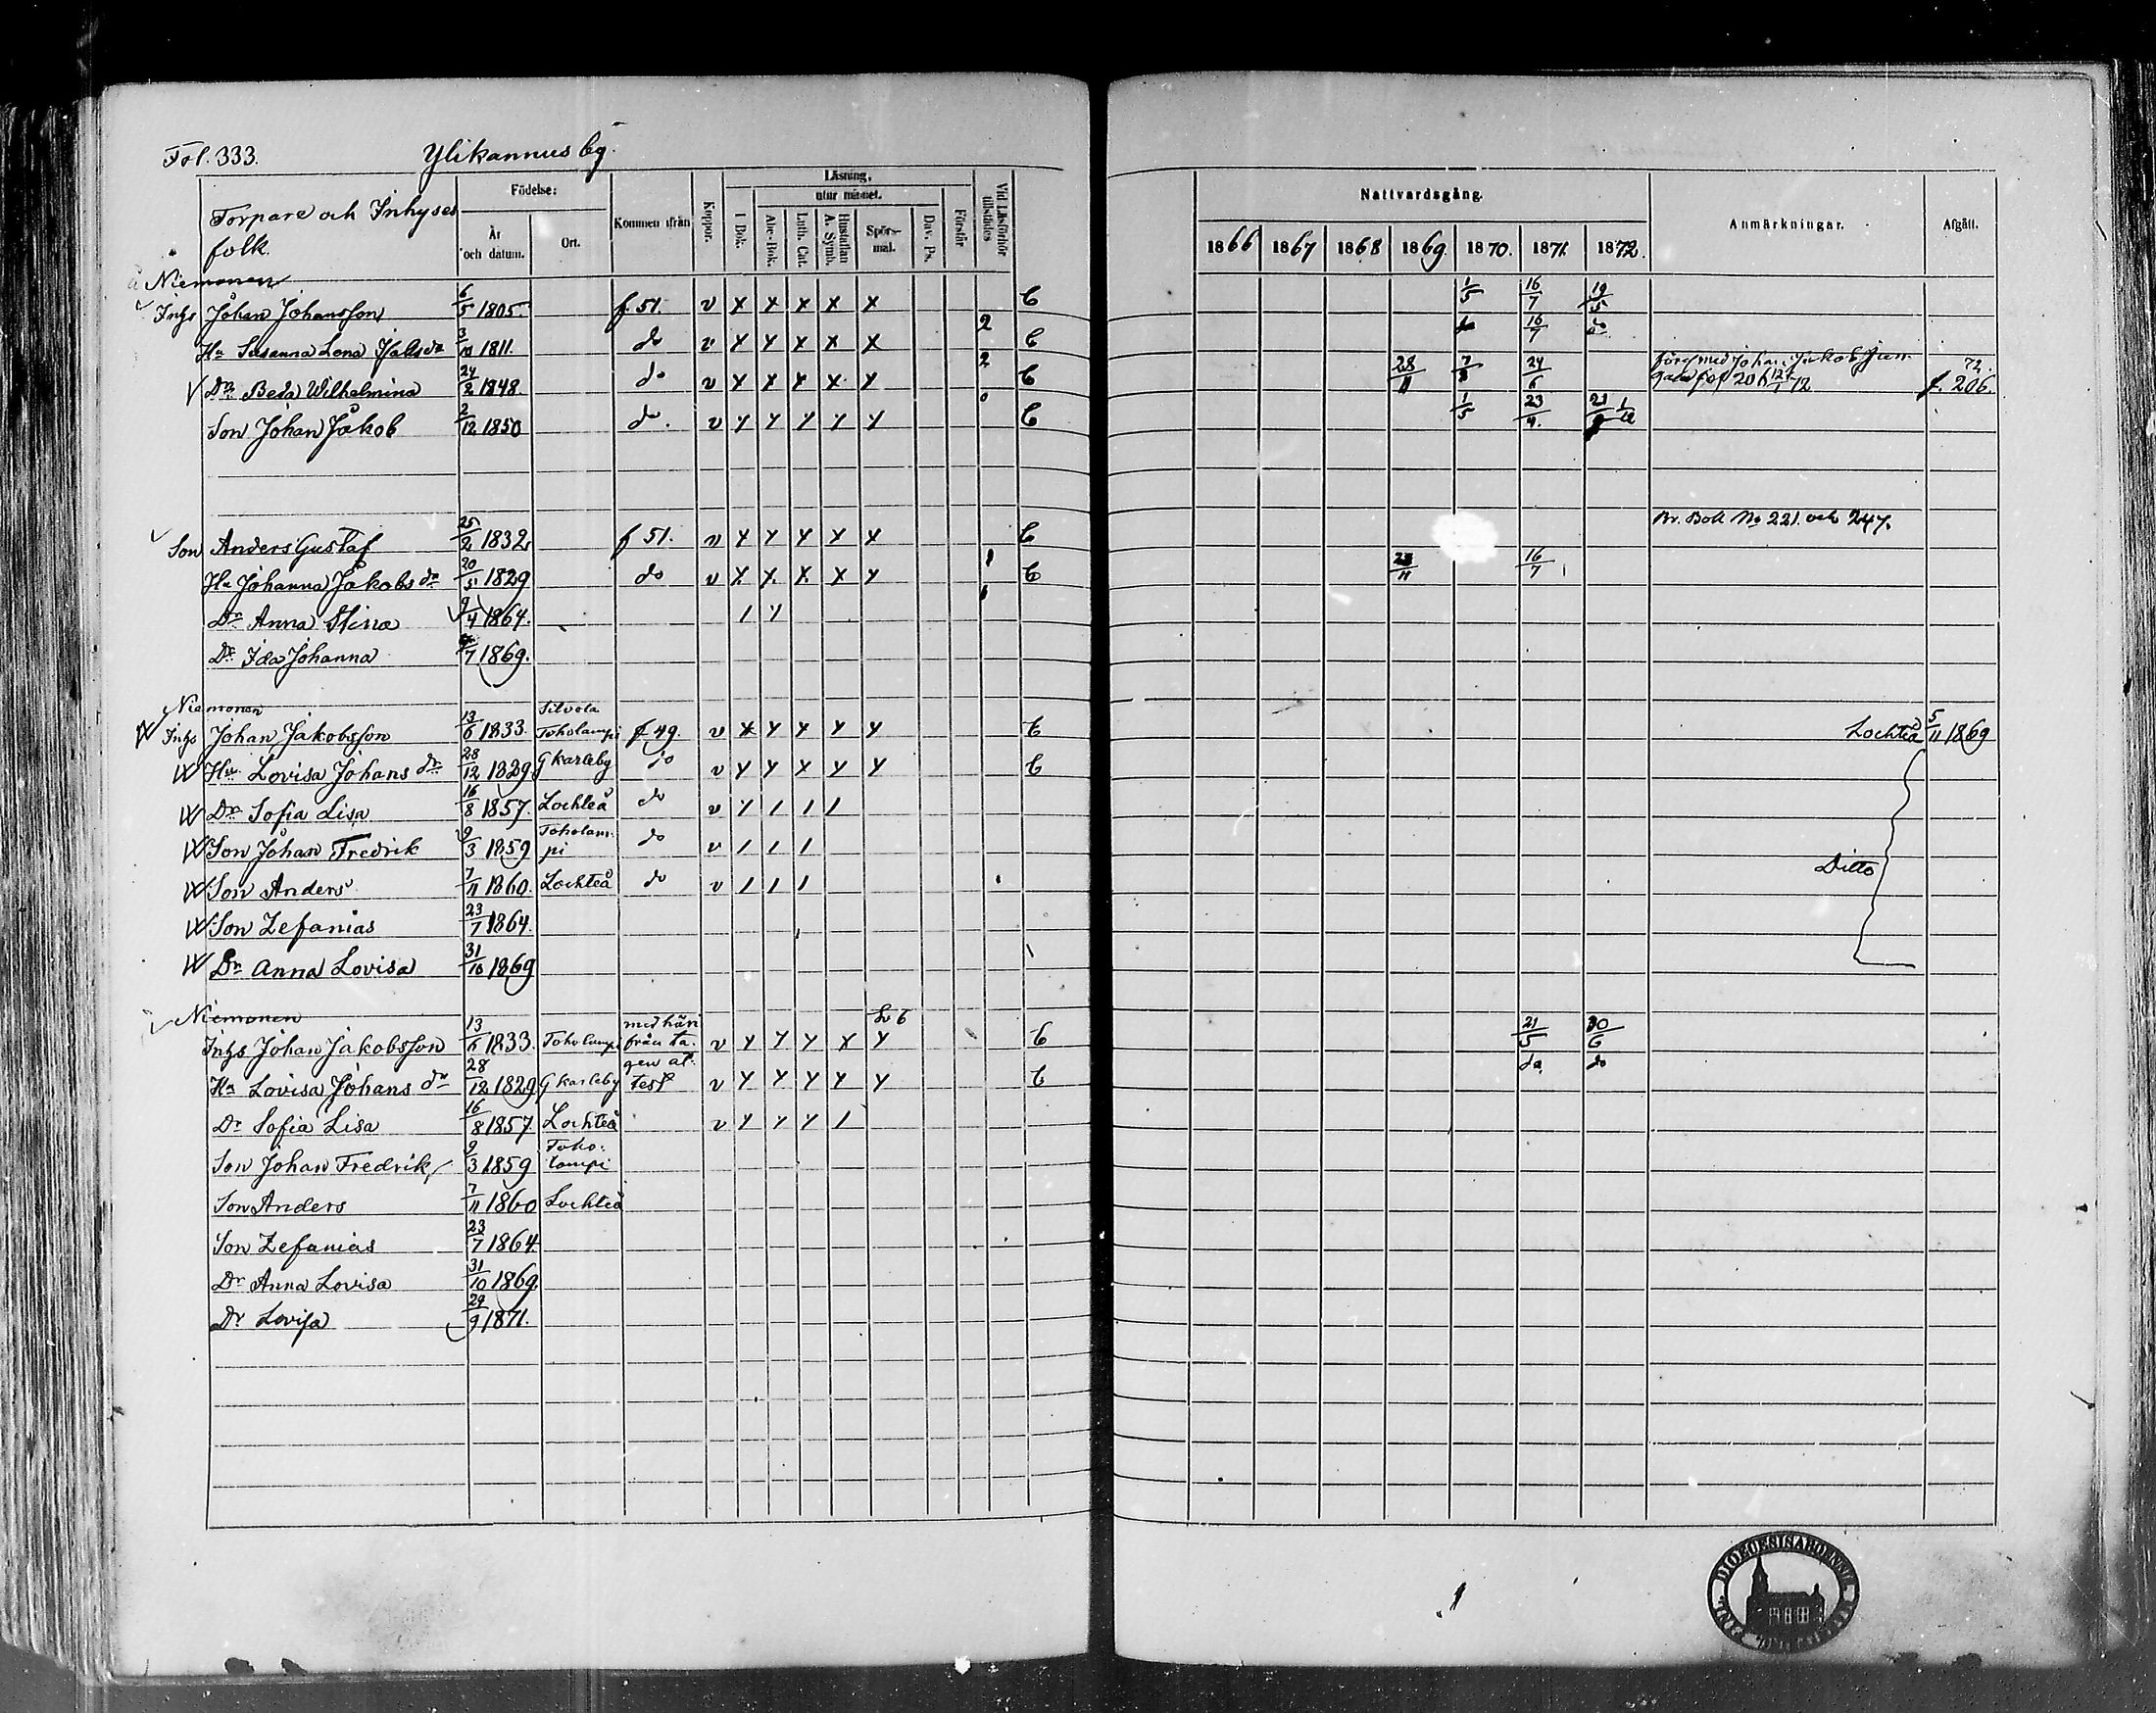 Fol. 333. Ylikannus by.
Torpare och Inhyses folk. Födelse: År och datum. Ort. Kommen ifrån Koppor. Läsning, I Bok. utur minnet. Abc-Bok. Luth. Cat. Hustaflan A. Symb. Spörs-mål. Dav. Ps. Förstår Vid Läsförhör tillstädes Nattvardsgång. 1866 1867 1868 1869. 1870. 1871. 1872. Anmärkningar. Afgått.
Niemonen
Inhs Johan Johansson 6/5 1805. f. 51. v x x x x x C 1/5 16/7 19/5
Hu Susanna Lena 3/10 1811. do v x x x x x 2 C do 16/7 do
Dr Beda Wilhelmina 24/2 1848. do v x x x x x 2 C 28/11 24/6 72. f. 206.
Son Johan Jakob 2/12 1850 do. v y y y y y 0 C 1/5 23/4.
Br. Bok No 221. och 247.
Son Anders Gustaf 25/2 1832 f 51. v y y y x x C
Hu Johanna Jakobs dr 20/5 1829 do v x x x x y 1 C 16/7
Dr Anna Stina 9/4 1864. 1
Dr Ida Johanna 1869.
Niemonen
Inhs Johan Jakobsson 13/6 1833. Silvola Toholampi f 49. v x y y y y C Lochteå 5/11 1869
Hu Lovisa Johans dr 28/12 1829 G karleby do v y y x y y C
Dr Sofia Lisa 16/8 1857. Lochteå do v y / / /
Son Johan Fredrik 9/3 1859 Toholam-pi do v / / /
Son Anders 7/11 1860. Lochteå do v / / / Ditto
Son Zefanias 23/7 1864.
Dr Anna Lovisa 31/10 1869
Niemonen
Inhs Johan Jakobsson 13/6 1833. Toholampi med häri från ta- v y y y x y C 21/5 30/6
Hu Lovisa Johans dr 28/12 1829 G karleby gen at-test v y y y y y C do do
Dr Sofia Lisa 16/8 1857 Lochteå v y y y /
Son Johan Fredrik 9/3 1859 Toho-lampi
Son Anders 7/11 1860 Lochteå
Son Zefanias 23/7 1864
Dr Anna Lovisa 31/10 1869.
Dr Lovisa 29/9 1871.